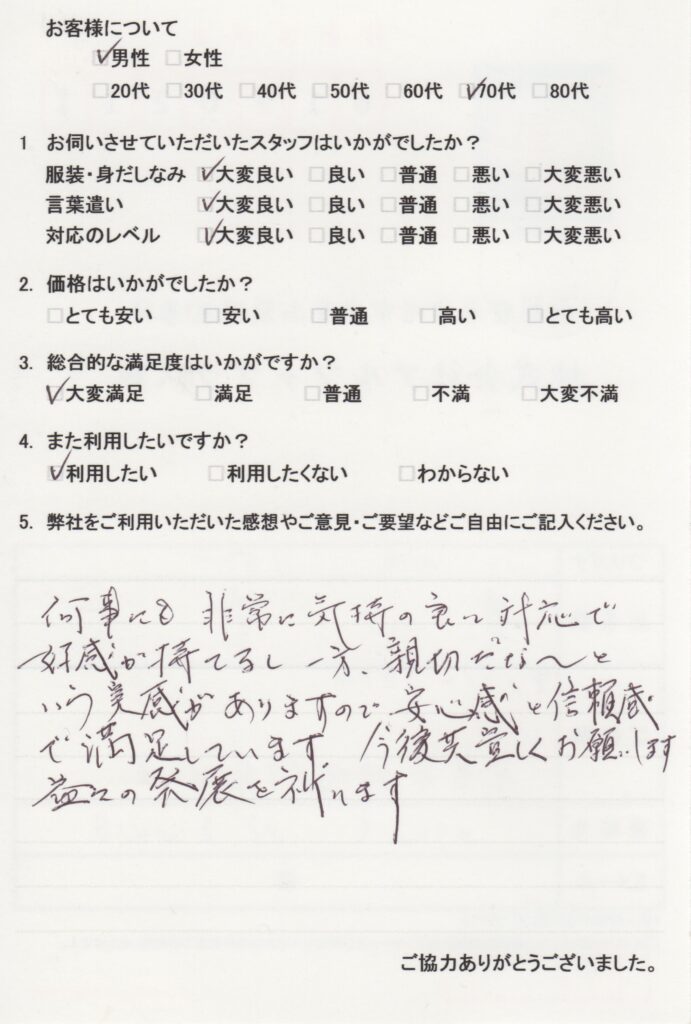 お客様について
☑男性 □女性
□20代 □30代 □40代 □50代 □60代 ☑70代 □80代
1 お伺いさせていただいたスタッフはいかがでしたか？
服装・身だしなみ ☑大変良い □良い □普通 □悪い □大変悪い
言葉遣い ☑大変良い □良い □普通 □悪い □大変悪い
対応のレベル ☑大変良い □良い □普通 □悪い □大変悪い
2. 価格はいかがでしたか？
□とても安い □安い □普通 □高い □とても高い
3. 総合的な満足度はいかがですか？
☑大変満足 □満足 □普通 □不満 □大変不満
4. また利用したいですか？
☑利用したい □利用したくない □わからない
5. 弊社をご利用いただいた感想やご意見・ご要望などご自由にご記入ください。
何事にも 非常に気持の良い対応で
好感が持てるし 一方、親切だな〜と
いう実感がありますので 安心感と信頼感
で満足しています。今後共宜しくお願いします
益々の発展を祈ります
ご協力ありがとうございました。